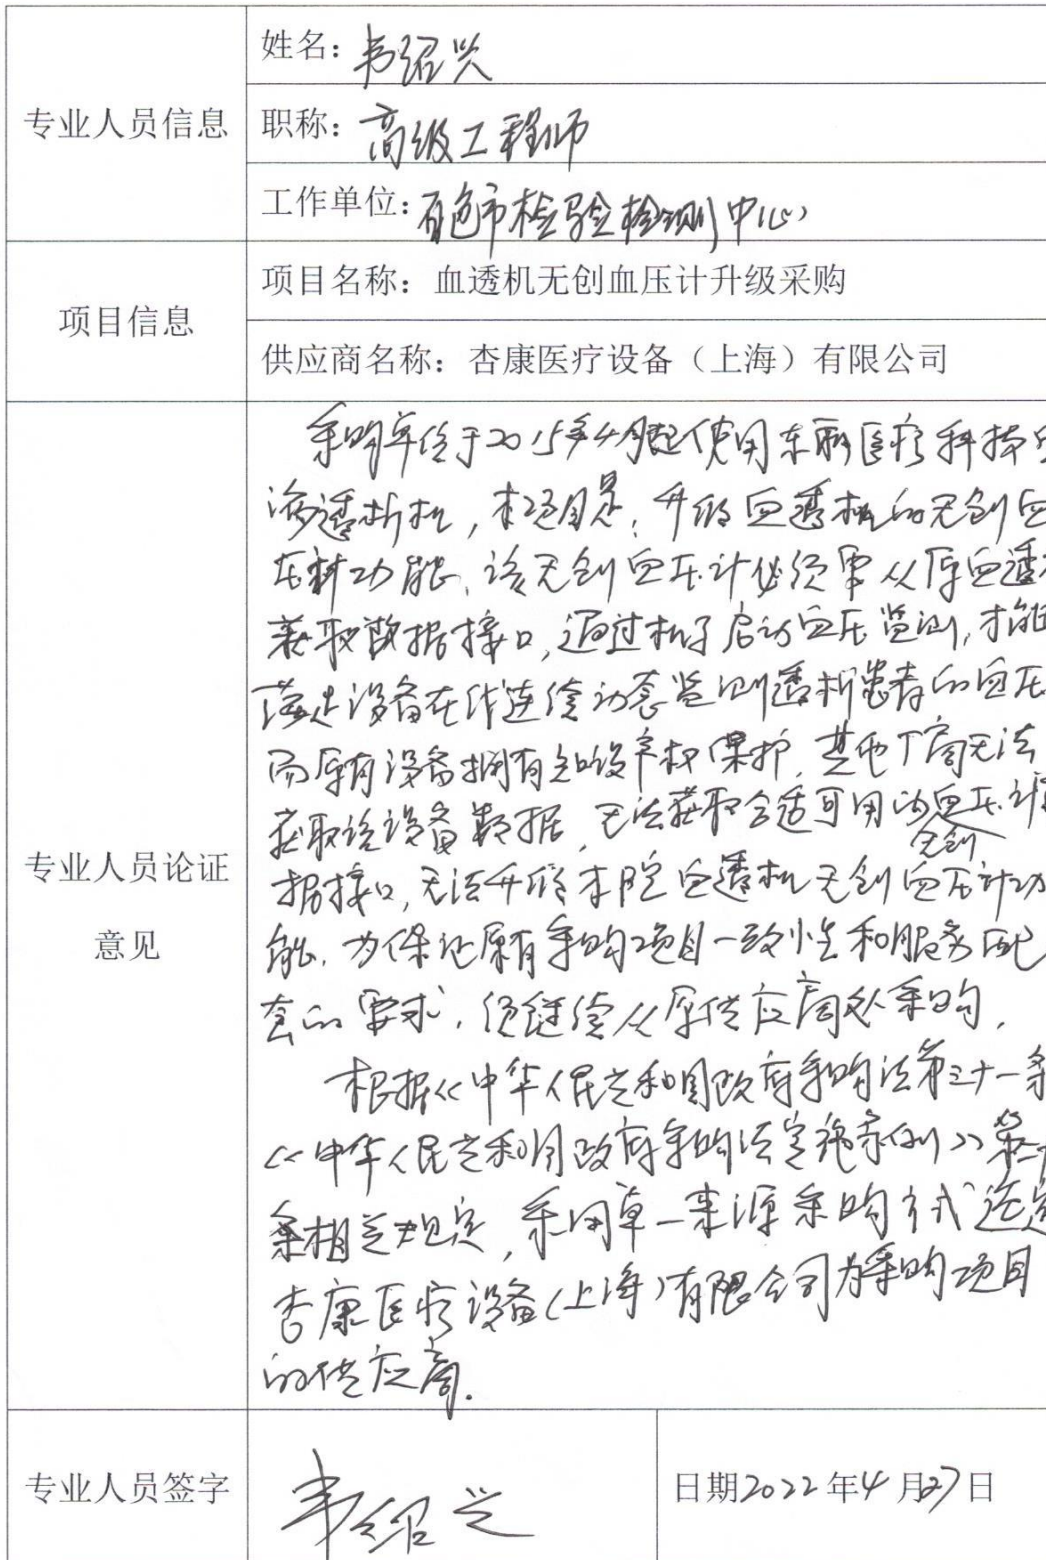 专业人员信息
姓名：韦绍兴
职称：高级工程师
工作单位：百色市检验检测中心
项目信息
项目名称：血透机无创血压计升级采购
供应商名称：杏康医疗设备（上海）有限公司
专业人员论证
意见
采购单位于2015年4月起使用东丽医疗科技血
液透析机，本项目是，升级血透机的无创血
压计功能，该无创血压计必须要从原血透机
获取数据接口，通过机子启动血压监测，才能
满足设备在线连续动态监测透析患者的血压，
而原有设备拥有知识产权保护，其他厂商无法
获取该设备数据，无法获取合适可用的无创血压计数
据接口，无法升级本院血透机无创血压计功
能，为保证原有采购项目一致性和服务配
套的要求，须继续从原供应商处采购，
根据《中华人民共和国政府采购法第三十一条
《中华人民共和国政府采购法实施条例》第二十
条相关规定，采用单一来源采购方式选定
杏康医疗设备（上海）有限公司为采购项目
的供应商.
专业人员签字
韦绍兴
日期2022年4月27日